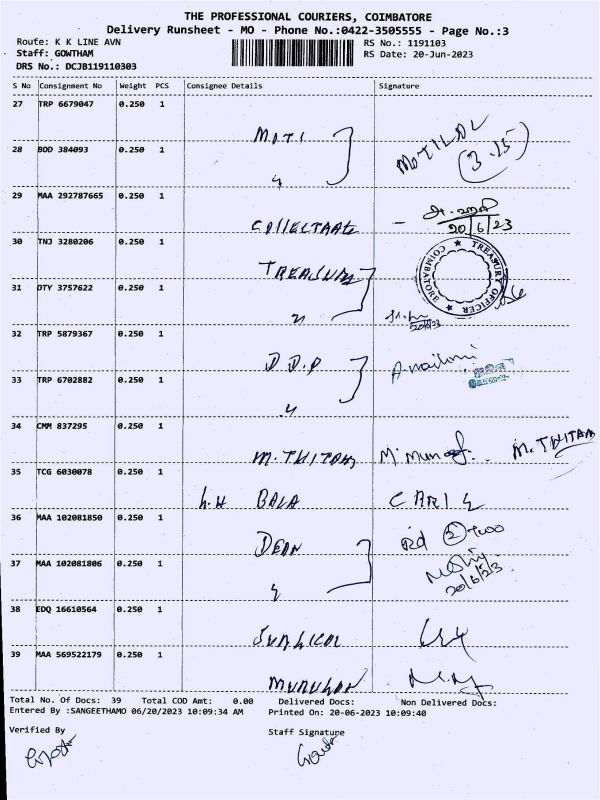 THE PROFESSIONAL COURIERS, COIMBATORE
Delivery Runsheet - MO - Phone No.:0422-3505555 - Page No.:3
Route: K K LINE AVN
RS No.: 1191103
Staff: GOWTHAM
RS Date: 20-Jun-2023
DRS No.: DCJB119110303
S No Consignment No Weight PCS Consignee Details Signature
27 TRP 6679047 0.250 1
MOTI MOTILAL
28 BOD 384093 0.250 1
(3.15)
29 MAA 292787665 1
COllECTRATE
20/6/23
30 TNJ 3280206 0.250 1
TREASURY
COIMBATORE ★ TREASURY OFFICER ★
31 DTY 3757622 0.250 1
32 TRP 5879367 0.250 1
D D.P
33 TRP 6702882 0.250 1
34 CMM 837295 0.250 1
35 TCG 6030078 0.250 1
L.H BALA
36 MAA 102081850 0.250 1
DEAN Rd ② Two
37 MAA 102081806 0.250 1
20/6/23
38 EDQ 16610564 0.250 1
SURGICAL
39 MAA 569522179 0.250 1
MURUGAN
Total No. Of Docs: 39 Total COD Amt: 0.00 Delivered Docs: Non Delivered Docs:
Entered By :SANGEETHAMO 06/20/2023 10:09:34 AM Printed On: 20-06-2023 10:09:40
Verified By Staff Signature